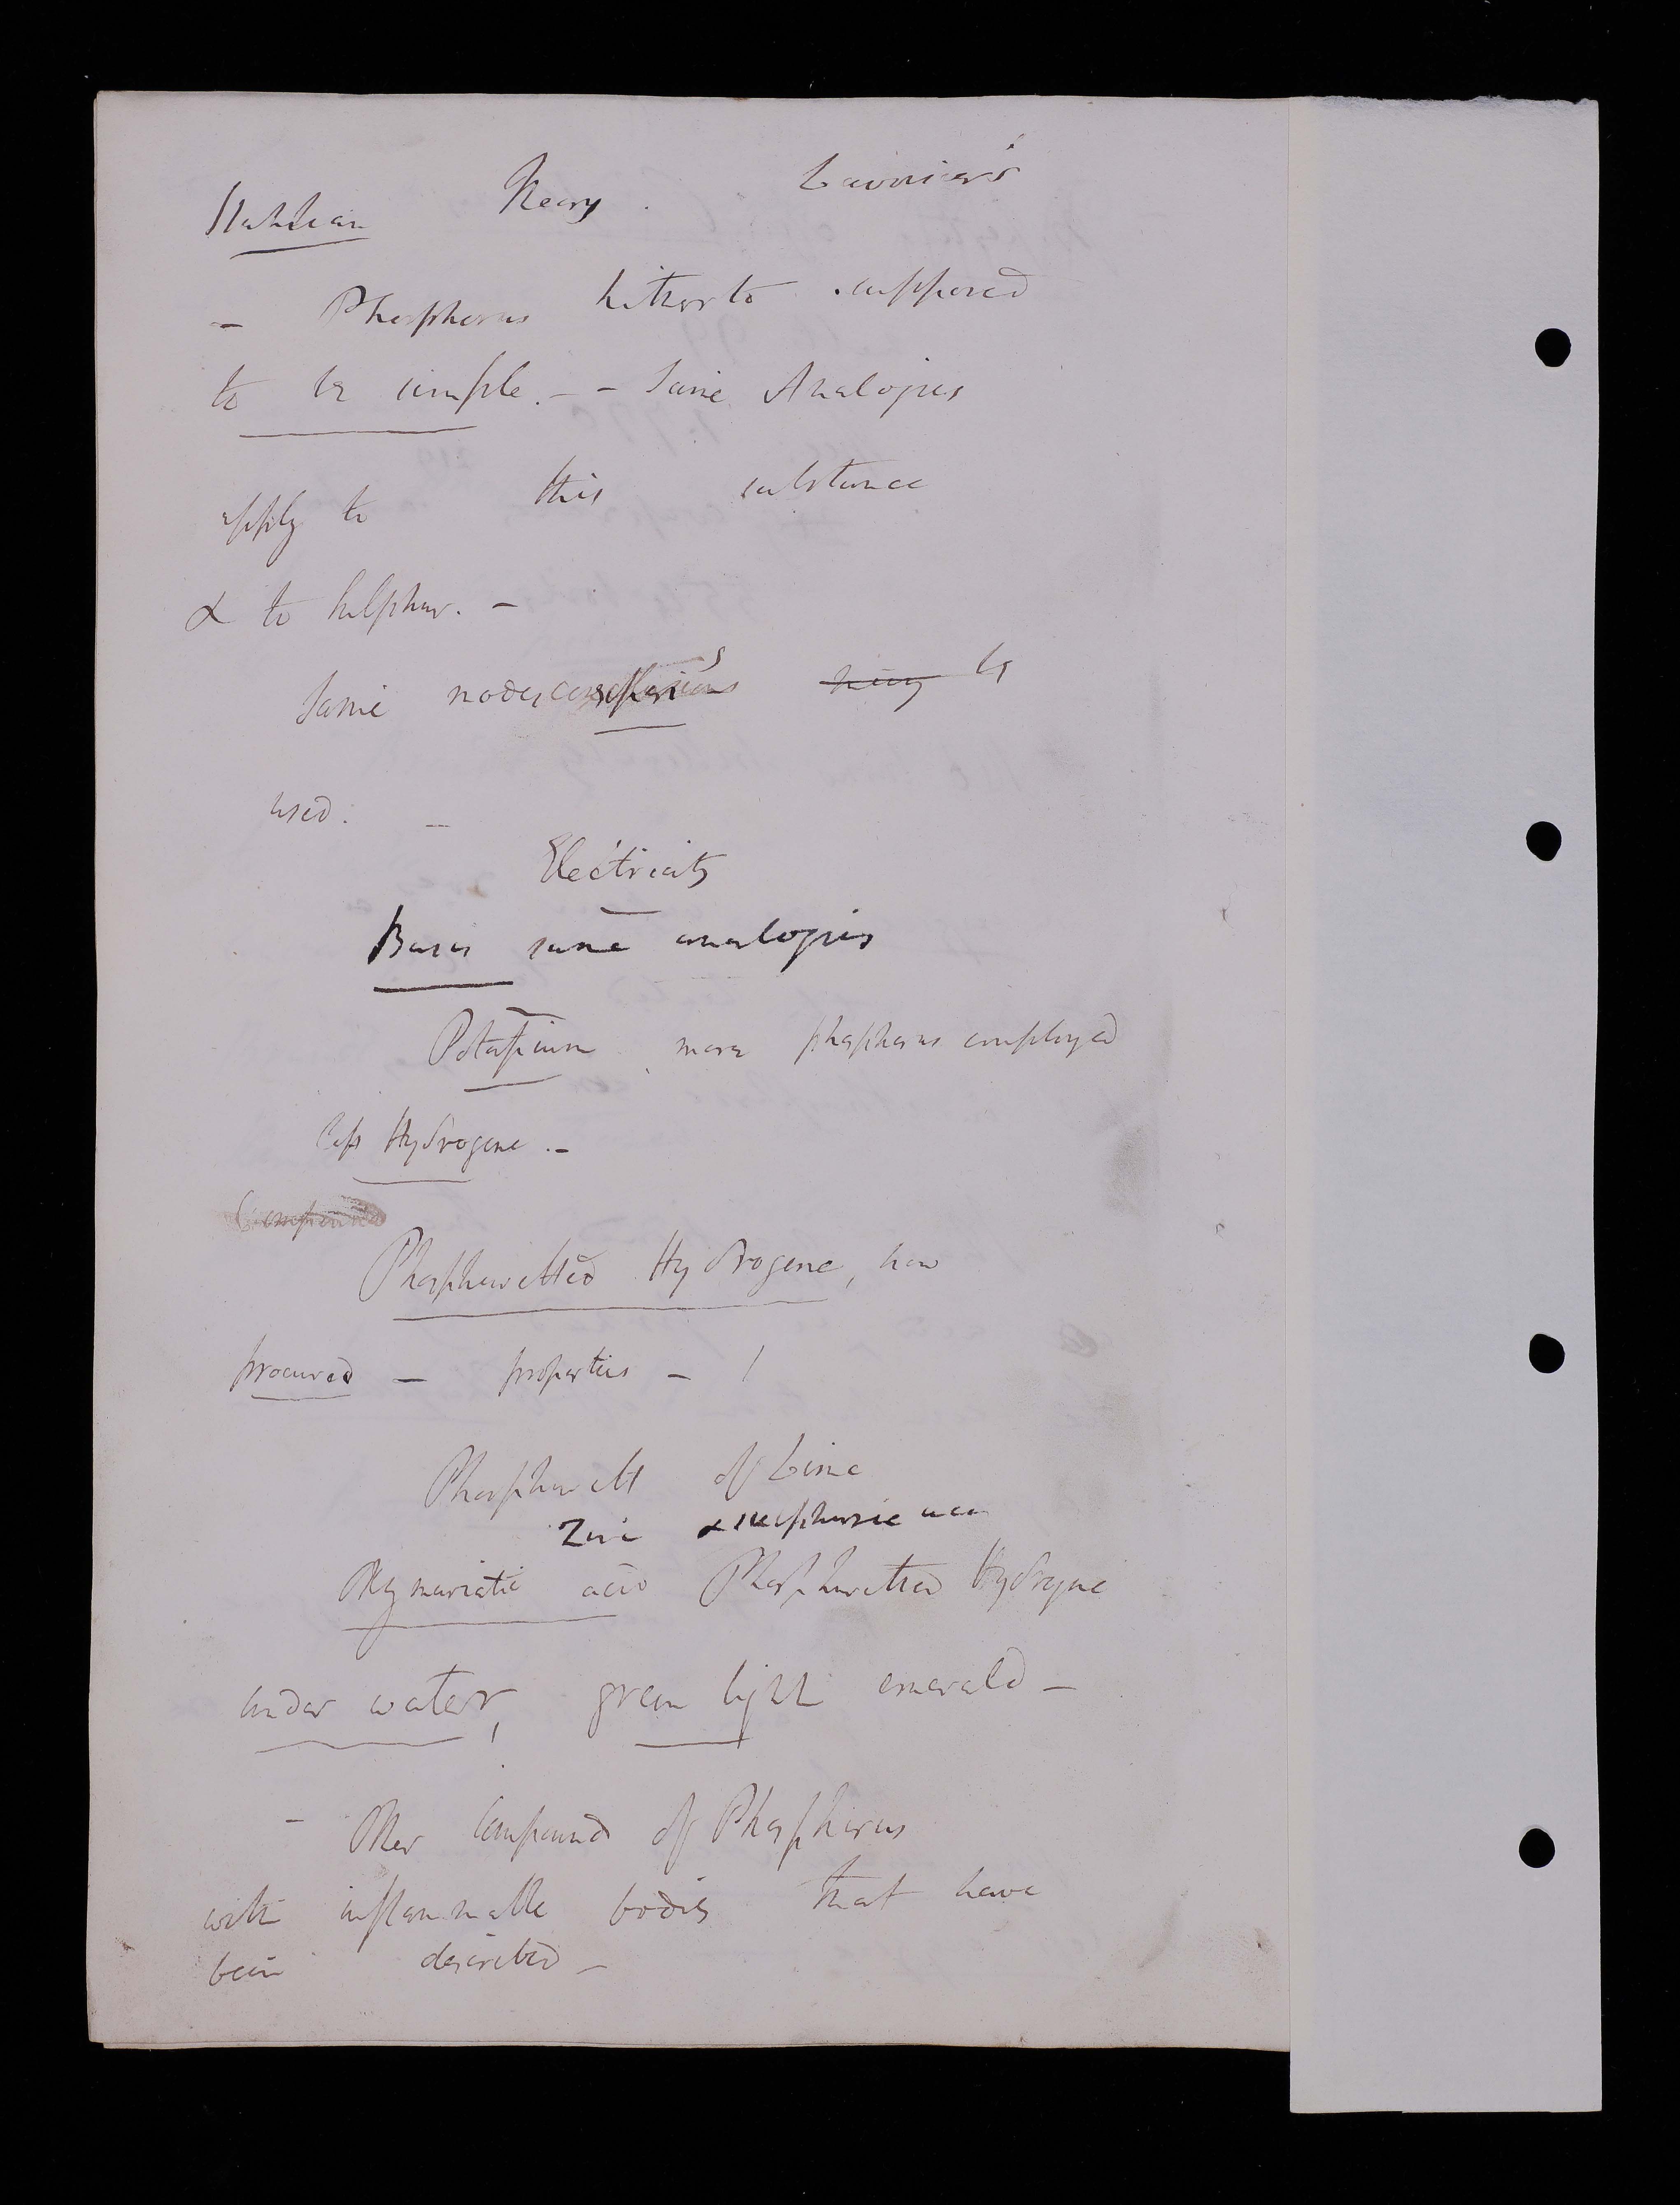 Stahlian Theory. Lavoisier's
- Phosphorus hitherto supposed
to be simple. - - Same Analogies
apply to this substance
& to sulphur. -
Same modes may be
used: -
Electricity
Basis same analogies
Potassium more phosphorus employed
less Hydrogene. -
Compounds
Phosphuretted Hydrogene, how
procured - properties - /
Phosphuret of Lime
Zinc & sulphuric acid
Oxymuriatic acid Phosphuretted Hydrogene
under water, green light emerald -
- Other Compounds of Phosphorus
with inflammable bodies that have
been described -